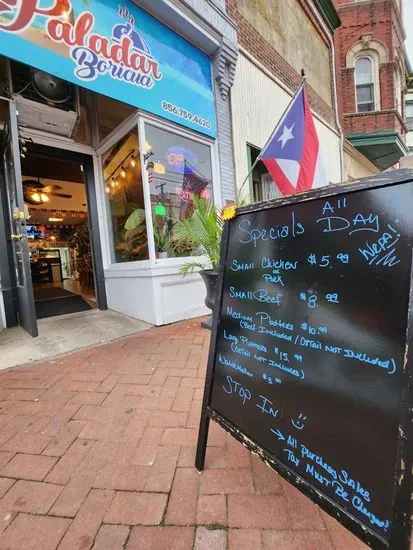 Paladar
Boricua
856.759.4620
OPEN
Specials All
DAY
Small Chicken $5.99
or
Pork
Small Beef $8.99
Medium Platters $10.99
(Beef Included / Oxtail Not Included)
Large Platters $15.99
(Oxtail Not Included)
$3.99
STOP IN!
→ All Purchase Sales
Tax Must Be Charged!